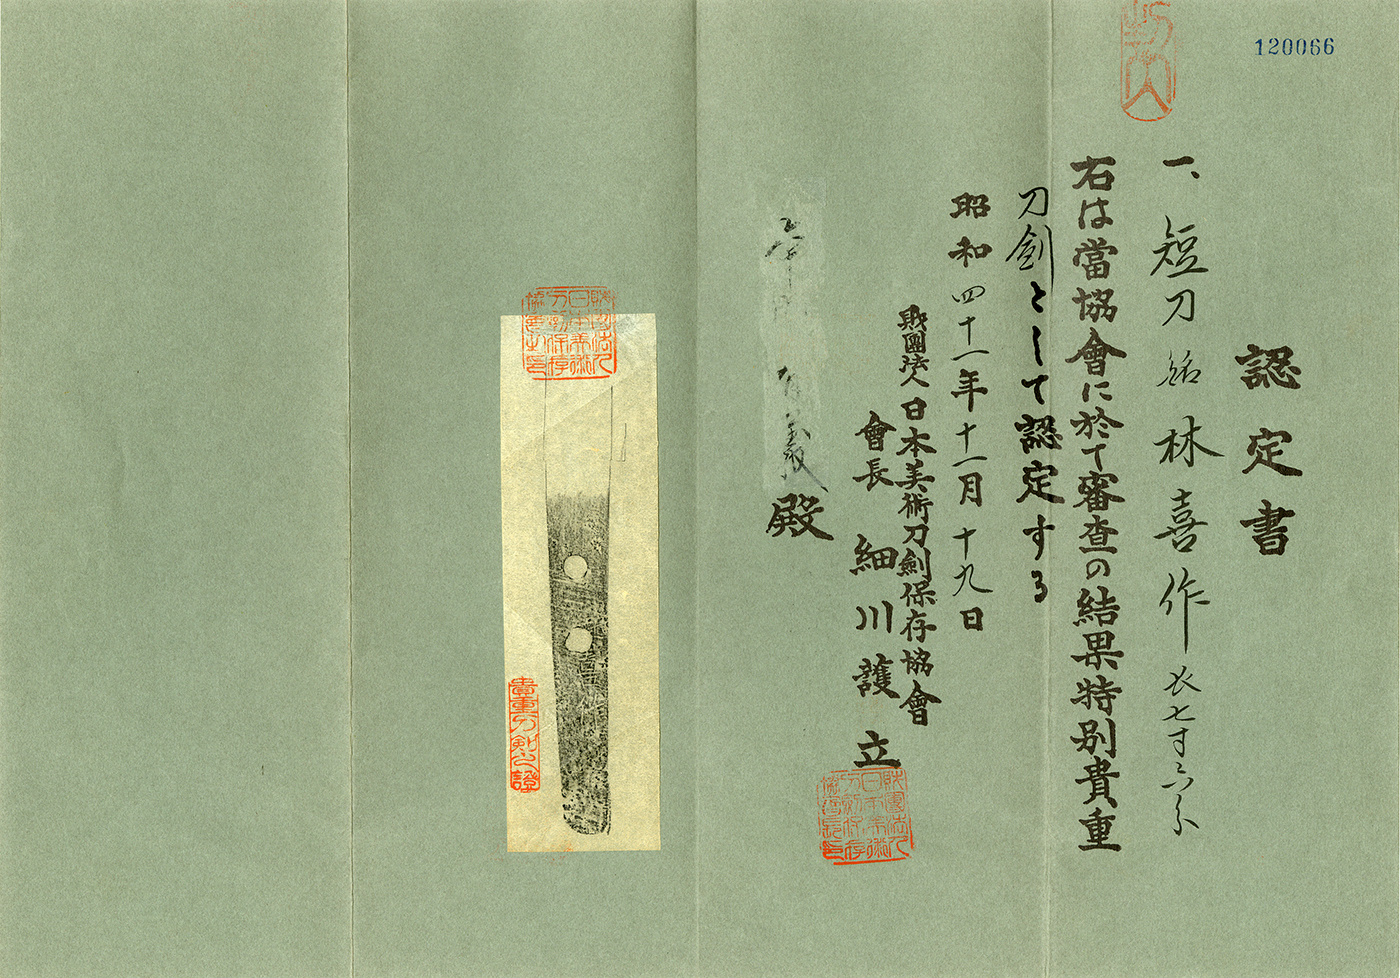 120066
認定書
一、短刀 銘 林喜作 長七寸六分
右は當協會に於て審査の結果特別貴重
刀劍として認定する
昭和四十一年十一月十九日
財團法人日本美術刀劍保存協會
會長 細川護立
義 殿
財團法人日本美術刀劍保存協會長印
財團法人日本美術刀劍保存協會之印
貴重刀剣之證